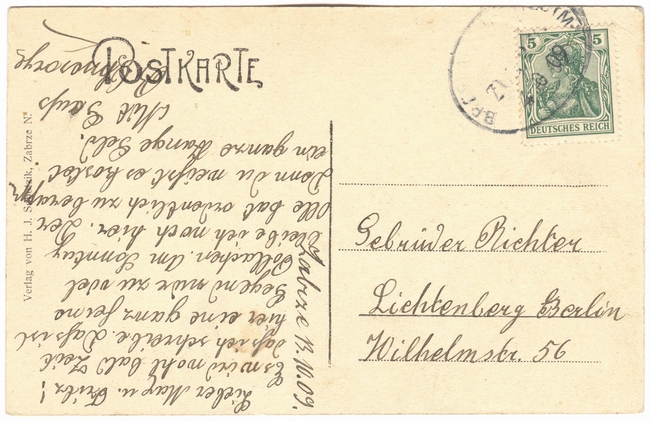 POSTKARTE
5 5
DEUTSCHES REICH
Zabrze 13.10.09.
Lieber Max u. Fritz!
Es wird wohl bald Zeit
daß ich schreibe. Das ist
hier eine ganz
Gegend nur zu viel
Pollachen. Am Sonntag
bleibe ich noch hier. Der
Olle hat ordentlich zu
Denn du weißt es kostet
ein ganze Menge Geld.
Mit Gruß
Gebrüder Richter
Lichtenberg Berlin
Wilhelmstr. 56
Verlag von H. J. Zabrze